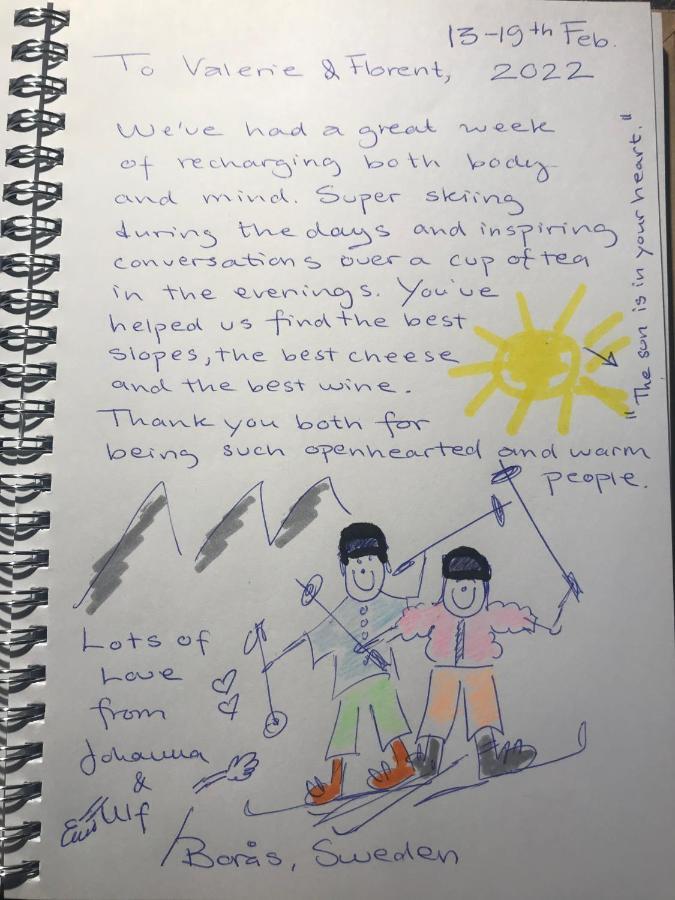 13-19th Feb.
To Valerie & Florent, 2022
We've had a great week
of recharging both body
and mind. Super skiing
during the days and inspiring
conversations over a cup of tea
in the evenings. You've
helped us find the best
slopes, the best cheese
and the best wine.
Thank you both for
being such openhearted and warm
people.
"The sun is in your heart."
Lots of
Love
from
Johanna
&
Ulf
/Borås, Sweden